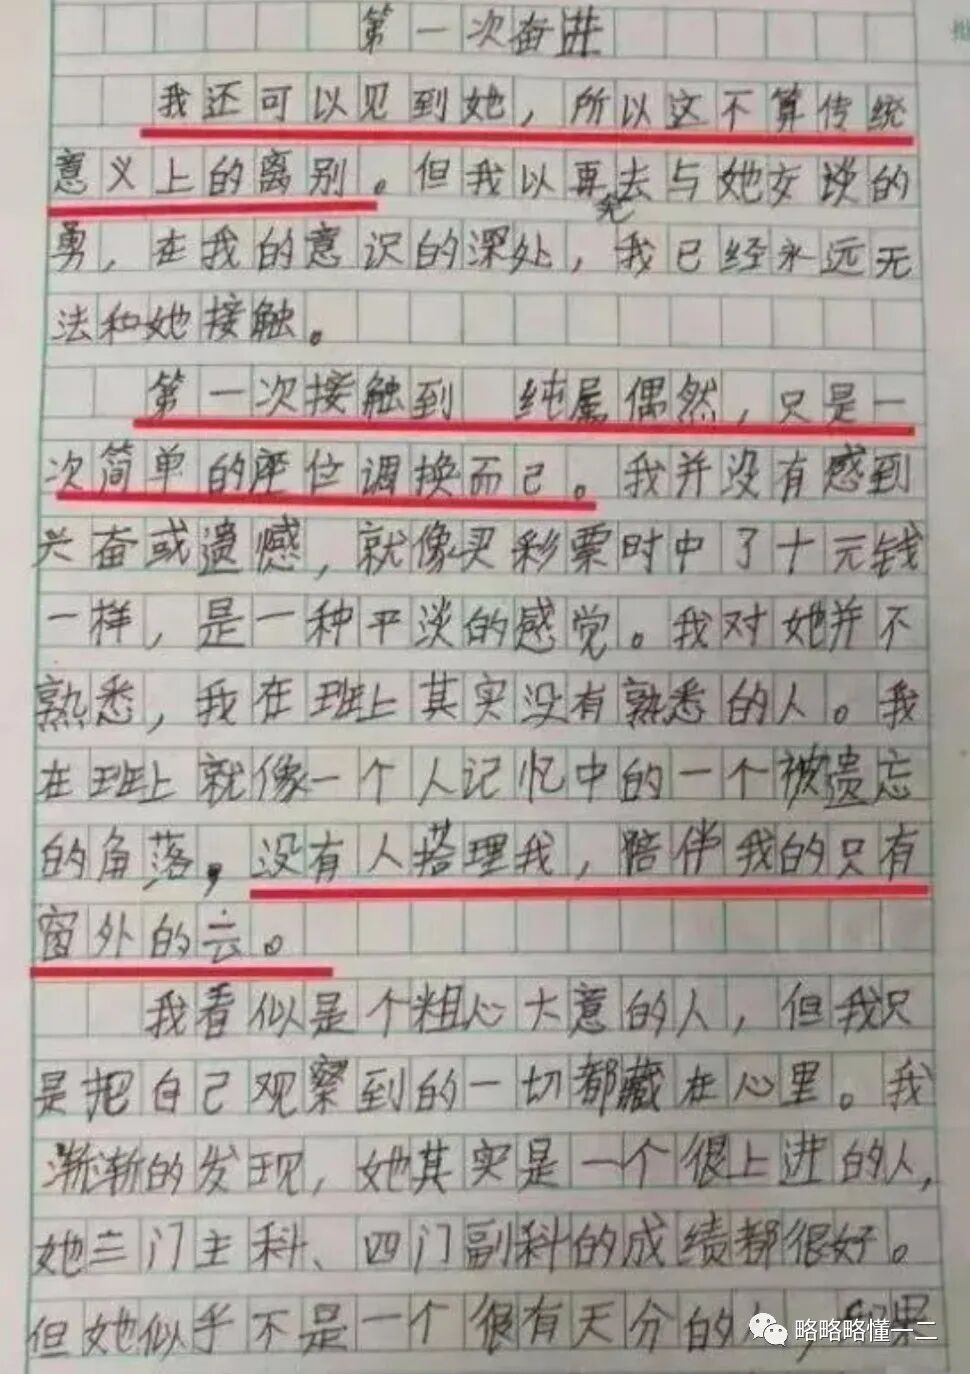 第一次奋进
我还可以见到她，所以这不算传统
意义上的离别。但我以再去与她交谈的
勇，在我的意识的深处，我已经永远无
法和她接触。
第一次接触到 纯属偶然，只是一
次简单的座位调换而已。我并没有感到
兴奋或遗憾，就像买彩票时中了十元钱
一样，是一种平淡的感觉。我对她并不
熟悉，我在班上其实没有熟悉的人。我
在班上就像一个人记忆中的一个被遗忘
的角落，没有人搭理我，陪伴我的只有
窗外的云。
我看似是个粗心大意的人，但我只
是把自己观察到的一切都藏在心里。我
渐渐的发现，她其实是一个很上进的人，
她三门主科、四门副科的成绩都很好。
但她似乎不是一个很有天分的人，如果
略略略懂一二